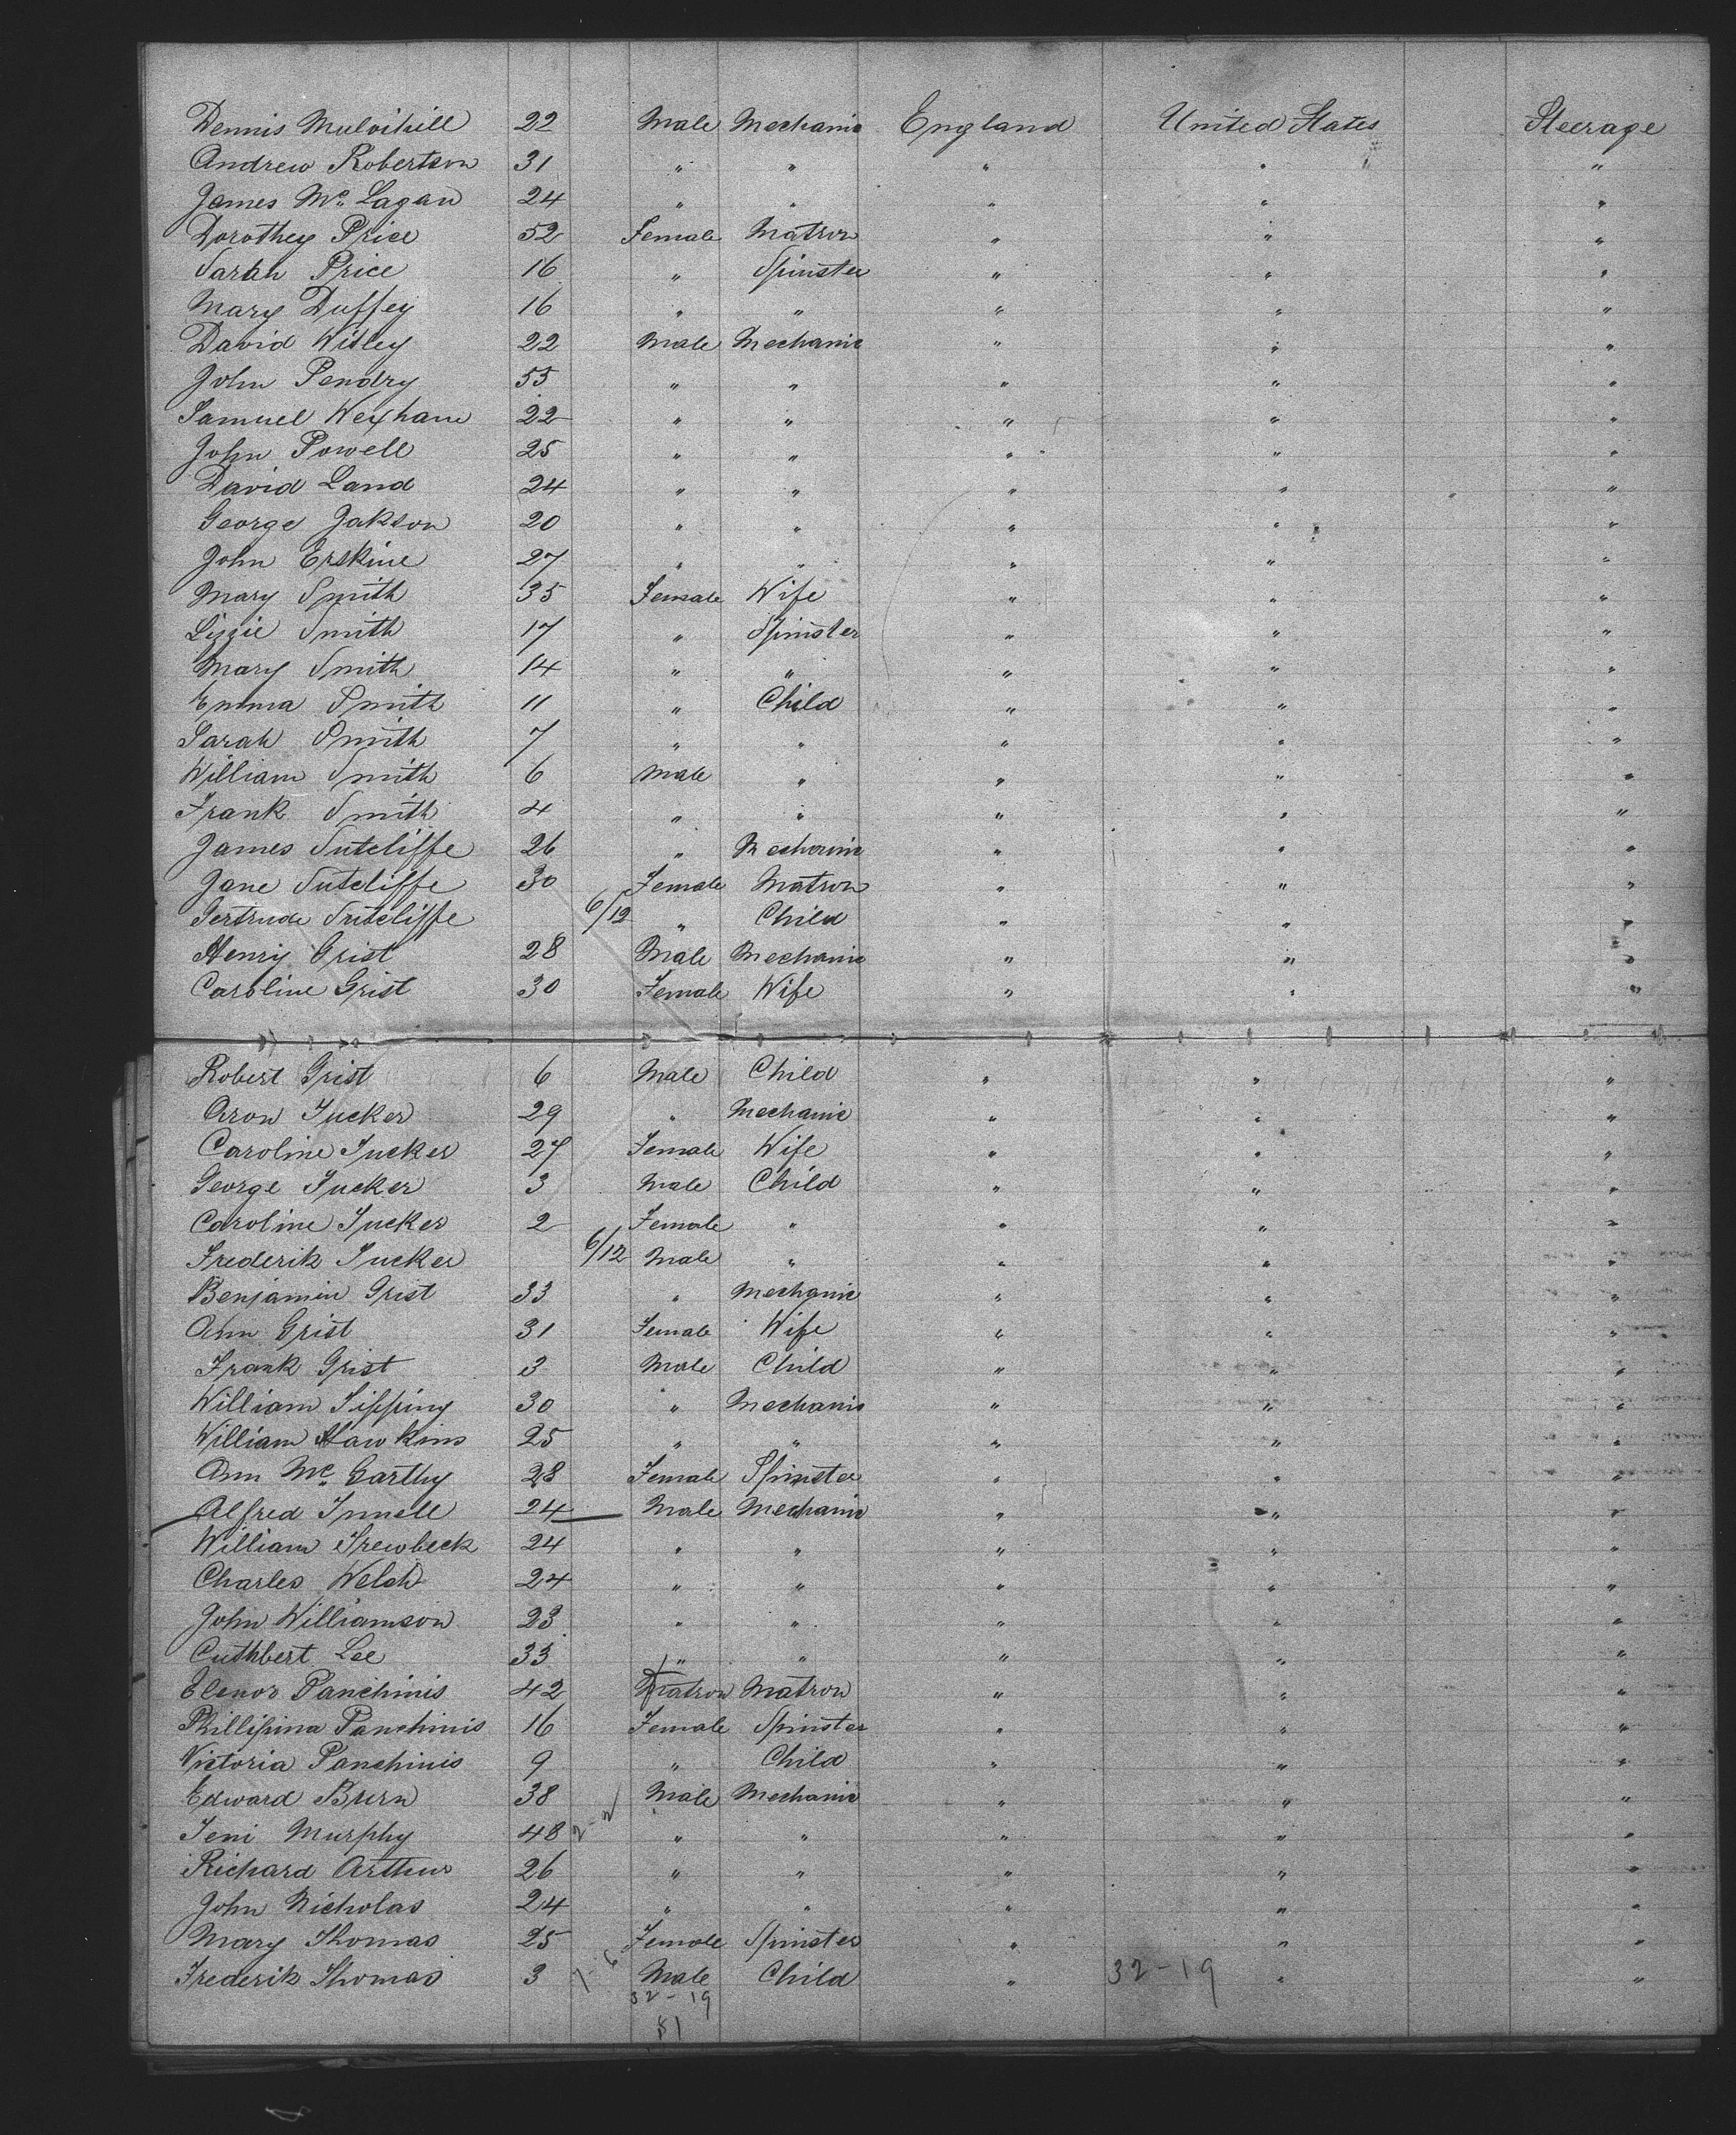 Dennis Mulvihill 22 Male Mechanic England United States Steerage
Andrew Robertson 31 " " " " "
James Mc Lagan 24 " " " " "
Dorothey Price 52 Female Matron " " "
Sarah Price 16 " Spinster " " "
Mary Duffey 16 " " " " "
David Wisley 22 Male Mechanic " " "
John Pendry 55 " " " " "
Samuel Wexham 22 " " " " "
John Powell 25 " " " " "
David Land 24 " " " " "
George Jakson 20 " " " " "
John Erskine 27 " " " " "
Mary Smith 35 Female Wife " " "
Lizzie Smith 17 " Spinster " " "
Mary Smith 14 " " " " "
Emma Smith 11 " Child " " "
Sarah Smith 7 " " " " "
William Smith 6 Male " " " "
Frank Smith 4 " " " " "
James Sutcliffe 26 " Mechanic " " "
Jane Sutcliffe 30 Female Matron " " "
Gertrude Sutcliffe 6/12 " Child " " "
Henry Grist 28 Male Mechanic " " "
Caroline Grist 30 Female Wife " " "
Robert Grist 6 Male Child " " "
Aron Tucker 29 " Mechanic " " "
Caroline Tucker 27 Female Wife " " "
George Tucker 3 Male Child " " "
Caroline Tucker 2 Female " " " "
Frederik Tucker 6/12 Male " " " "
Benjamin Grist 33 " Mechanic " " "
Ann Grist 31 Female Wife " " "
Frank Grist 3 Male Child " " "
William Tipping 30 " Mechanic " " "
William Hawkins 25 " " " " "
Ann Mc Carthy 28 Female Spinster " " "
Alfred 24 Male Mechanic " " "
William Trewbeck 24 " " " " "
Charles Welch 24 " " " " "
John Williamson 23 " " " " "
Cuthbert Lee 33 " " " " "
Elenor Panchinis 42 Matron Matron " " "
Phillipina Panchinis 16 Female Spinster " " "
Victoria Panchinis 9 " Child " " "
Edward Burn 38 Male Mechanic " " "
Jeni Murphy 48 2-2 " " " " "
Richard Arthur 26 " " " " "
John Nicholas 24 " " " " "
Mary Thomas 25 Female Spinster " " "
Frederik Thomas 3 7-6 Male Child " 32-19 " "
32-19
81